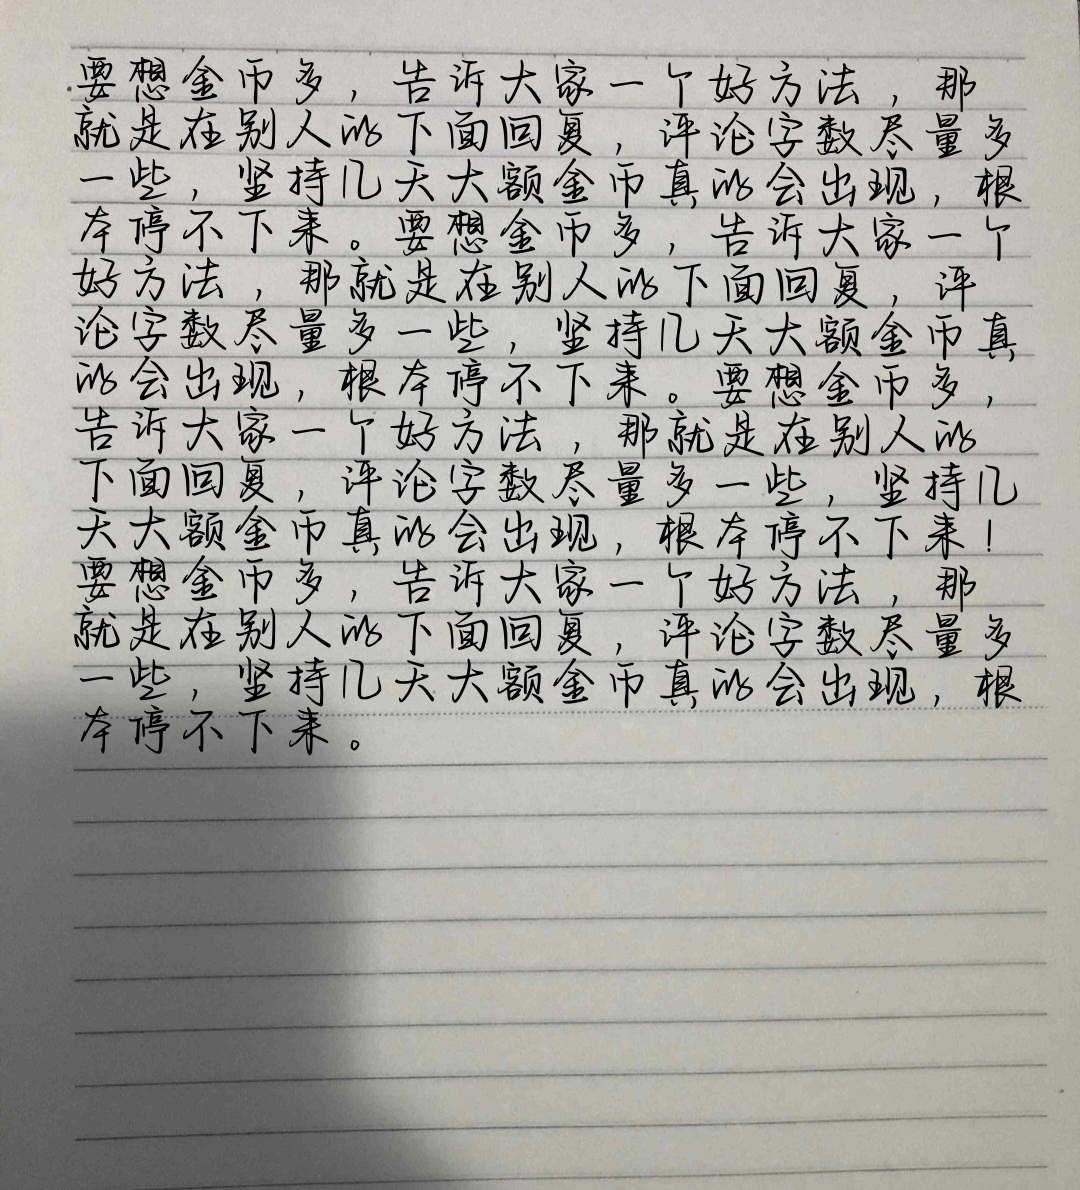 要想金币多，告诉大家一个好方法，那
就是在别人的下面回复，评论字数尽量多
一些，坚持几天大额金币真的会出现，根
本停不下来。要想金币多，告诉大家一个
好方法，那就是在别人的下面回复，评
论字数尽量多一些，坚持几天大额金币真
的会出现，根本停不下来。要想金币多，
告诉大家一个好方法，那就是在别人的
下面回复，评论字数尽量多一些，坚持几
天大额金币真的会出现，根本停不下来！
要想金币多，告诉大家一个好方法，那
就是在别人的下面回复，评论字数尽量多
一些，坚持几天大额金币真的会出现，根
本停不下来。